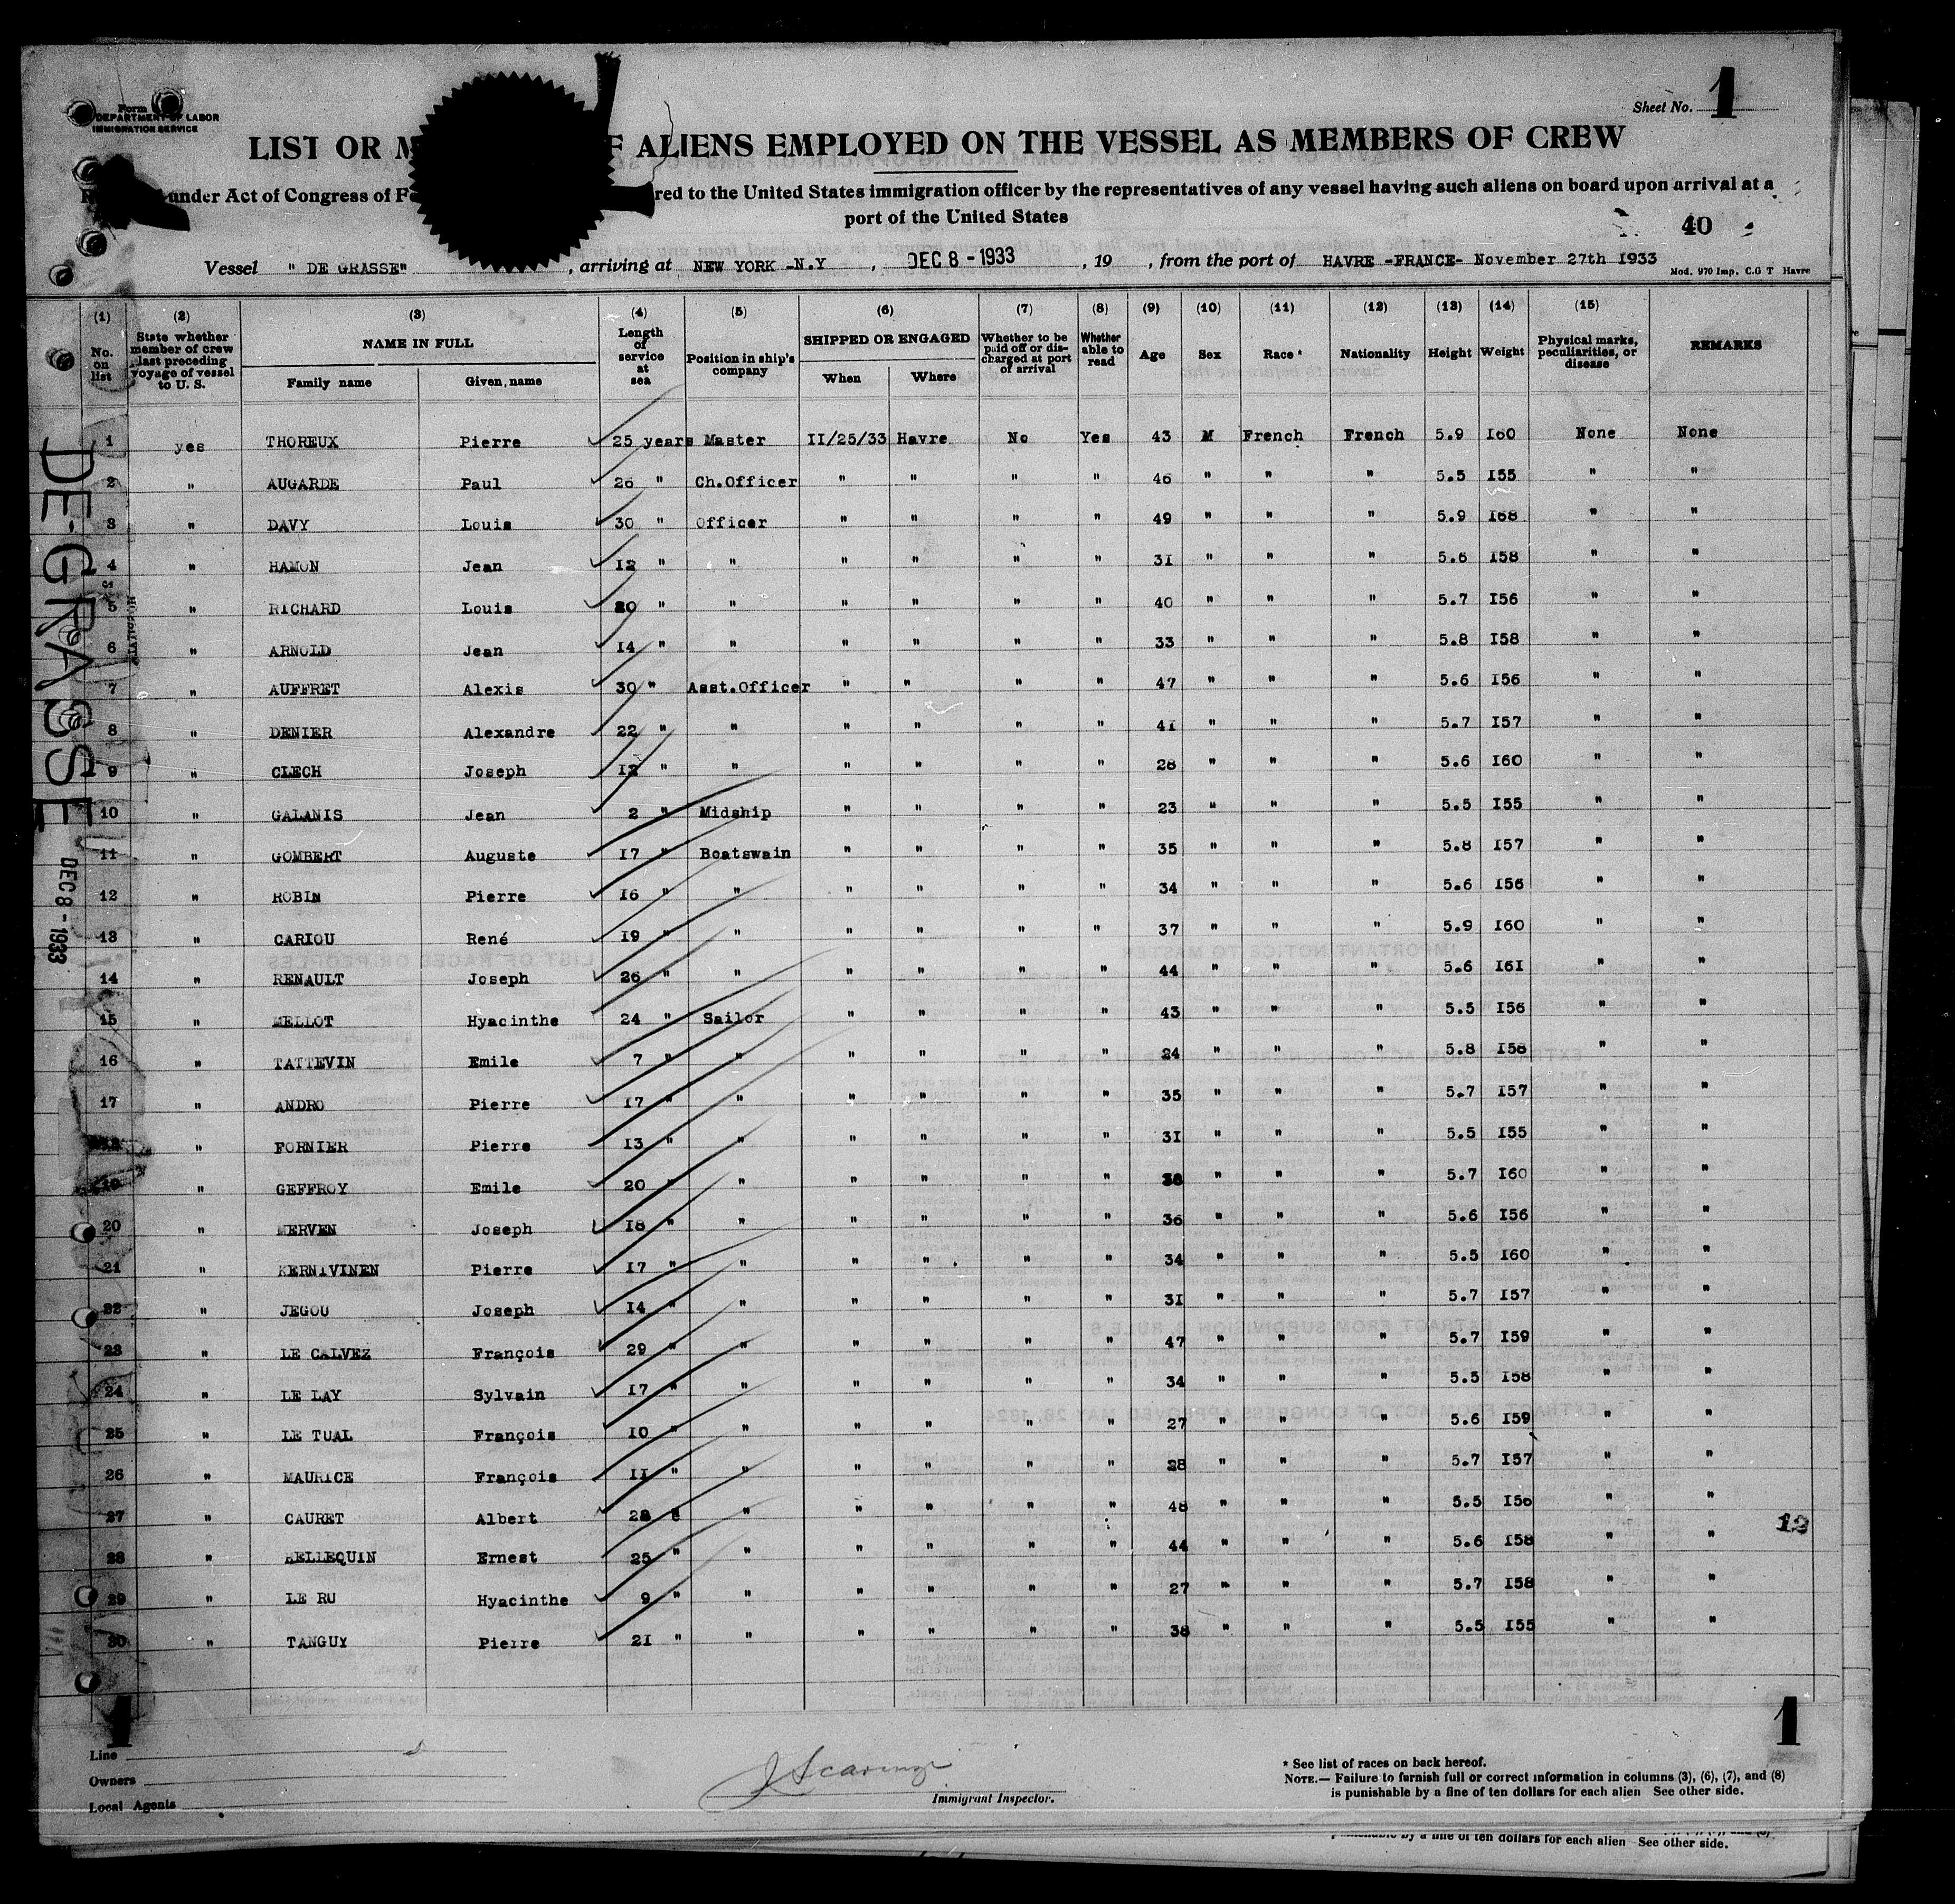 Sheet No. 1
Form
DEPARTMENT OF LABOR
IMMIGRATION SERVICE
LIST OR M F ALIENS EMPLOYED ON THE VESSEL AS MEMBERS OF CREW
under Act of Congress of Fe red to the United States immigration officer by the representatives of any vessel having such aliens on board upon arrival at a
port of the United States
40
Vessel " DE GRASSE" , arriving at NEW YORK -N.Y , DEC 8 - 1933 , 19 , from the port of HAVRE -FRANCE- November 27th 1933
Mod. 970 Imp. C.G T Havre
(1) (2) (3) (4) (5) (6) (7) (8) (9) (10) (11) (12) (13) (14) (15)
No. on list State whether member of crew last preceding voyage of vessel to U. S. NAME IN FULL Length of service at sea Position in ship's company SHIPPED OR ENGAGED Whether to be paid off or discharged at port of arrival Whether able to read Age Sex Race * Nationality Height Weight Physical marks, peculiarities, or disease REMARKS
Family name Given name When Where
1 yes THOREUX Pierre 25 years Master II/25/33 Havre No Yes 43 M French French 5.9 I60 None None
2 " AUGARDE Paul 26 " Ch.Officer " " " " 46 " " " 5.5 I55 " "
3 " DAVY Louis 30 " Officer " " " " 49 " " " 5.9 I68 " "
4 " HAMON Jean I2 " " " " " " 3I " " " 5.6 I58 " "
5 " RICHARD Louis 20 " " " " " " 40 " " " 5.7 I56 " "
6 " ARNOLD Jean I4 " " " " " " 33 " " " 5.8 I58 " "
7 " AUFFRET Alexis 30 " Asst.Officer " " " " 47 " " " 5.6 I56 " "
8 " DENIER Alexandre 22 " " " " " " 4I " " " 5.7 I57 " "
9 " CLECH Joseph I2 " " " " " " 28 " " " 5.6 I60 " "
10 " GALANIS Jean 2 " Midship " " " " 23 " " " 5.5 I55 " "
11 " GOMBERT Auguste I7 " Boatswain " " " " 35 " " " 5.8 I57 " "
12 " ROBIN Pierre I6 " " " " " " 34 " " " 5.6 I56 " "
13 " CARIOU René I9 " " " " " " 37 " " " 5.9 I60 " "
14 " RENAULT Joseph 26 " " " " " " 44 " " " 5.6 I6I " "
15 " MELLOT Hyacinthe 24 " Sailor " " " " 43 " " " 5.5 I56 " "
16 " TATTEVIN Emile 7 " " " " " " 24 " " " 5.8 I58 " "
17 " ANDRO Pierre I7 " " " " " " 35 " " " 5.7 I57 " "
18 " FORNIER Pierre I3 " " " " " " 3I " " " 5.5 I55 " "
19 " GEFFROY Emile 20 " " " " " " 38 " " " 5.7 I60 " "
20 " MERVEN Joseph I8 " " " " " " 36 " " " 5.6 I56 " "
21 " KERNIVINEN Pierre I7 " " " " " " 34 " " " 5.5 I60 " "
22 " JEGOU Joseph I4 " " " " " " 3I " " " 5.7 I57 " "
23 " LE CALVEZ François 29 " " " " " " 47 " " " 5.7 I59 " "
24 " LE LAY Sylvain I7 " " " " " " 34 " " " 5.5 I58 " "
25 " LE TUAL François I0 " " " " " " 27 " " " 5.6 I59 " "
26 " MAURICE François II " " " " " " 28 " " " 5.7 I57 " "
27 " CAURET Albert 28 " " " " " 48 " " " 5.5 I56 " "
12
28 " HELLEQUIN Ernest 25 " " " " " " 44 " " " 5.6 I58 " "
29 " LE RU Hyacinthe 9 " " " " " " 27 " " " 5.7 I58 " "
30 " TANGUY Pierre 2I " " " " " " 38 " " " 5.5 I55 " "
DE-GRASSE
DEC 8 - 1933
1
1
Line
Owners
Local Agents
J Scaringi
Immigrant Inspector.
* See list of races on back hereof.
NOTE.— Failure to furnish full or correct information in columns (3), (6), (7), and (8)
is punishable by a fine of ten dollars for each alien See other side.
punishable by a fine of ten dollars for each alien See other side.